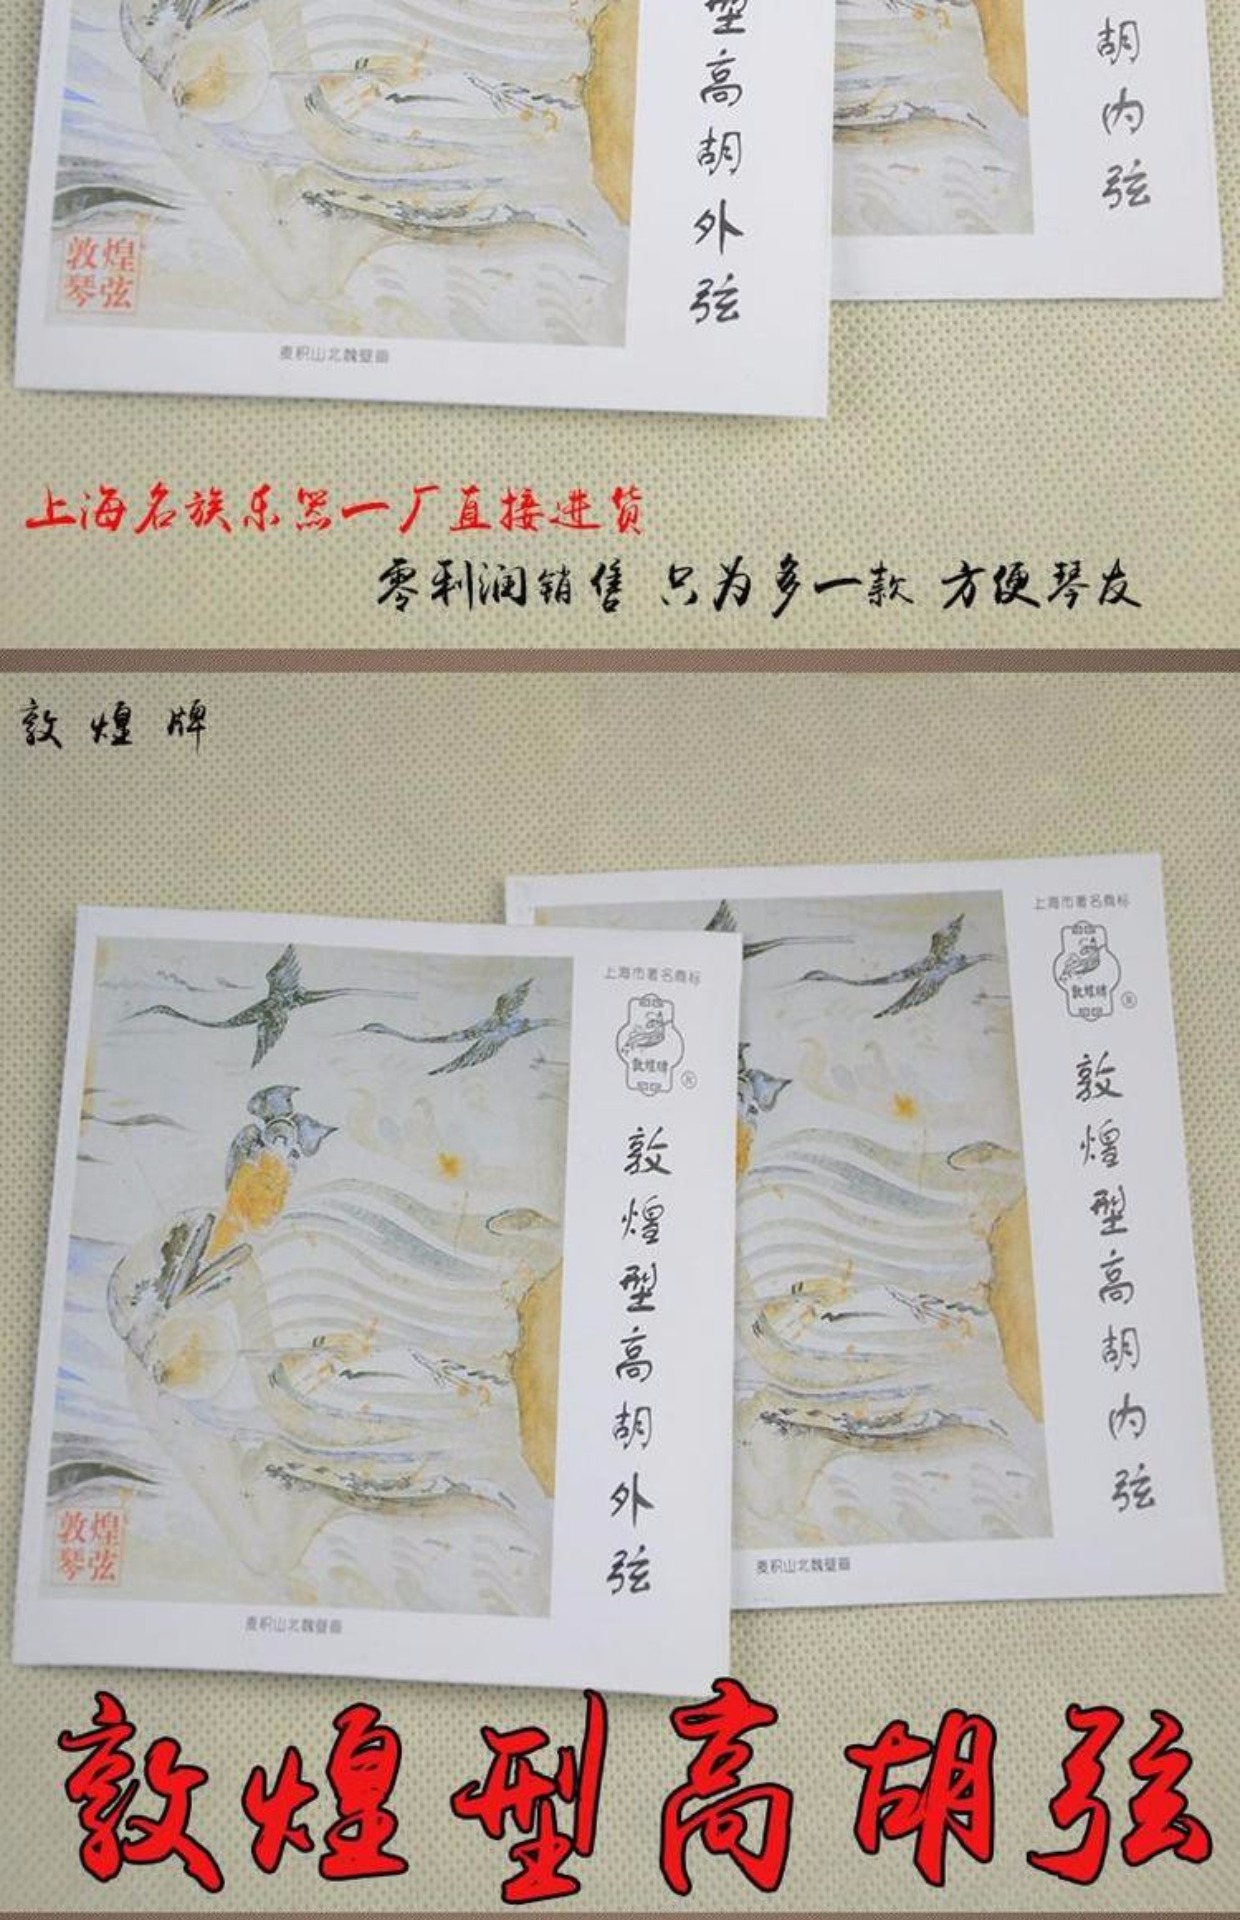 型高胡外弦
胡内弦
敦煌
琴弦
麦积山北魏壁画
上海名族乐器一厂直接进货
零利润销售 只为多一款 方便琴友
敦煌牌
上海市著名商标
敦煌牌
®
敦煌型高胡外弦
敦煌
琴弦
麦积山北魏壁画
上海市著名商标
敦煌牌
®
敦煌型高胡内弦
麦积山北魏壁画
敦煌型高胡弦